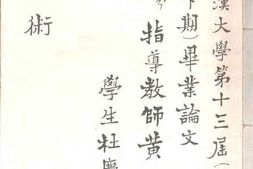 漢大學第十三屆(
下期)畢業論文
指導教師黄
學生杜
術